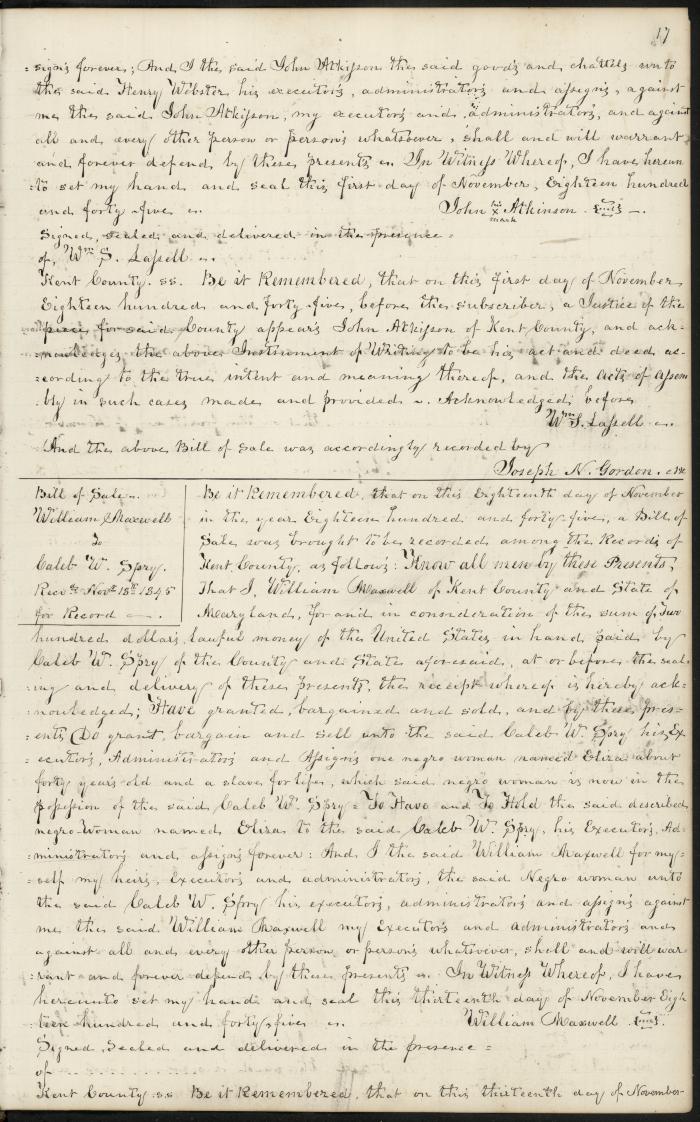 17
=signs forever; And I the said John Atkisson the said goods and chattels unto
the said Henry Webster his executors, administrators and assigns, against
me the said John Atkisson, my executors and administrators, and against
all and every other person or persons whatsoever, shall and will warrant
and forever defend by these presents. In Witness Whereof, I have hereun
=to set my hand and seal this first day of November, Eighteen hundred
and forty-five
John his x mark Atkinson {seal}
Signed, sealed and delivered in the presence=
of, Wm S. Lassell
Kent County. ss. Be it Remembered, that on this first day of November
Eighteen hundred and forty-five, before the subscriber, a Justice of the
peace for said County appears John Atkisson of Kent County, and ack-
=nowledges the above Instrument of Writing to be his act and deed ac-
=cording to the true intent and meaning thereof, and the acts of assem
bly in such cases made and provided. Acknowledged; before
Wm S. Lassell
And the above Bill of Sale was accordingly recorded by
Joseph N. Gordon.
Bill of Sale
William Maxwell
To
Caleb W. Spry.
Recd Novr 18th 1845
for Record
Be it Remembered, that on this Eighteenth day of November
in the year Eighteen hundred and forty five, a Bill of
Sale was brought to be recorded among the Records of
Kent County, as follows: Know all men by these Presents,
That I, William Maxwell of Kent County and State of
Maryland, for and in consideration of the sum of Two
hundred dollars, lawful money of the United States, in hand paid by
Caleb W. Spry of the County and State aforesaid, at or before the seal
=ing and delivery of these presents, the receipt whereof is hereby ack-
=nowledged; Have granted, bargained and sold, and by these pres-
=ents, Do grant, bargain and sell unto the said Caleb W. Spry his Ex
ecutors, Administrators and Assigns one negro woman named Eliza about
forty years old and a slave for life, which said negro woman is now in the
possession of the said Caleb W. Spry = To Have and To Hold the said described
negro woman named Eliza to the said Caleb W. Spry, his Executors, Ad-
=ministrators and assigns forever: And I the said William Maxwell for my-
=self my heirs, Executors and administrators, the said Negro woman unto
the said Caleb W. Spry his executors, administrators and assigns against
me the said William Maxwell my Executors and administrators and
against all and every other person or persons whatsoever, shall and will war
=rant and forever defend by these presents. In Witness Whereof, I have
hereunto set my hand and seal this thirteenth day of November Eigh
=teen hundred and forty-five
William Maxwell {seal}
Signed, Sealed and delivered in the presence =
of
Kent County ss. Be it Remembered, that on this thirteenth day of November